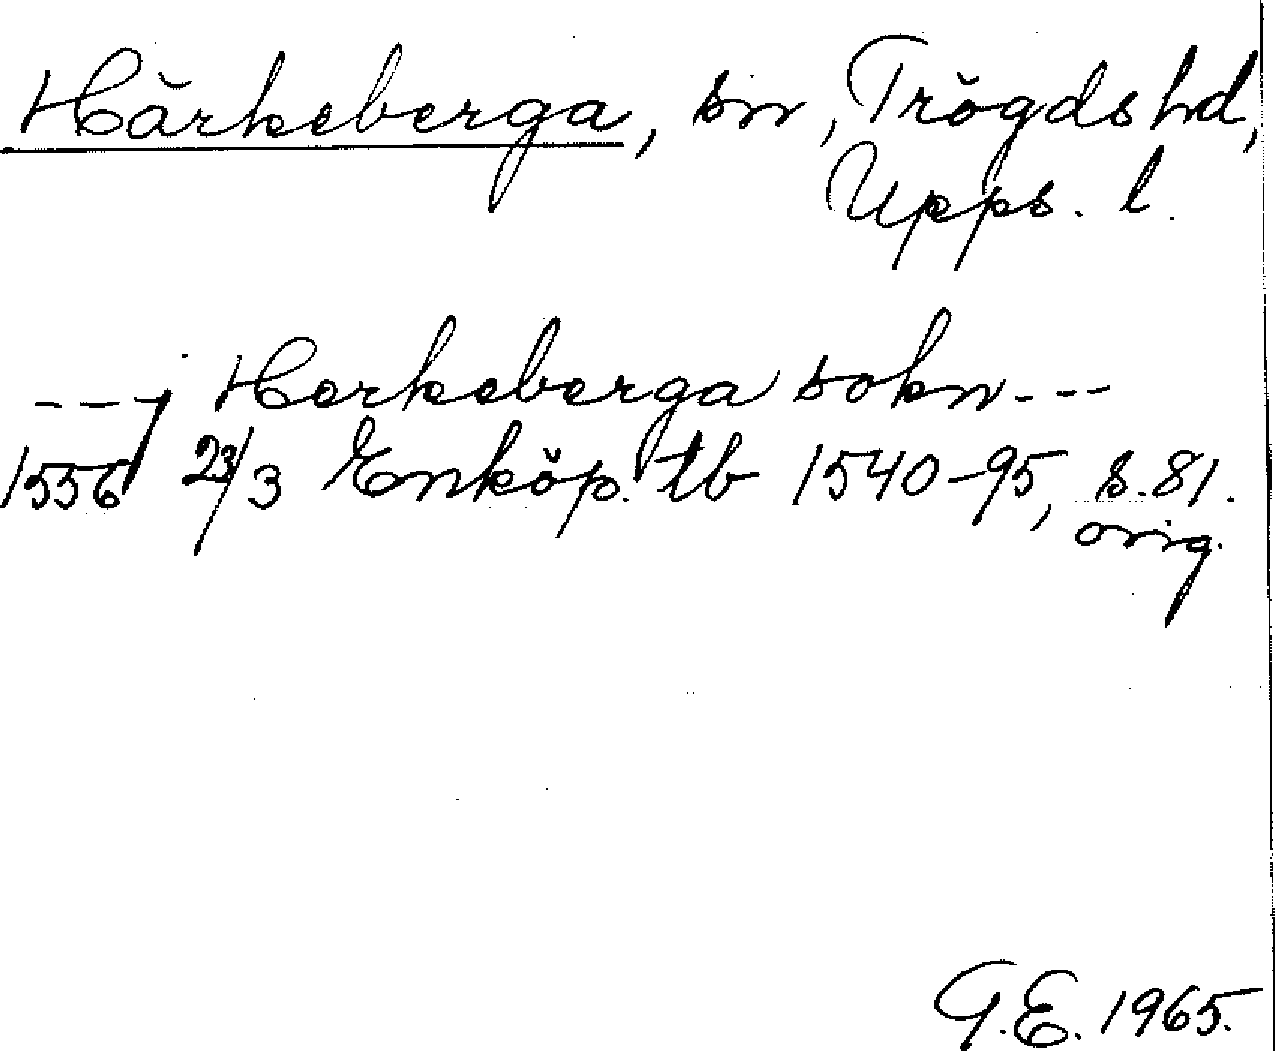 Härkeberga, sn, Trögds hd,
Upps. l.
--- j Herkeberga sokn ---
1556 23/3 Enköp. tb 1540-95, s. 81.
orig.
G.E. 1965.